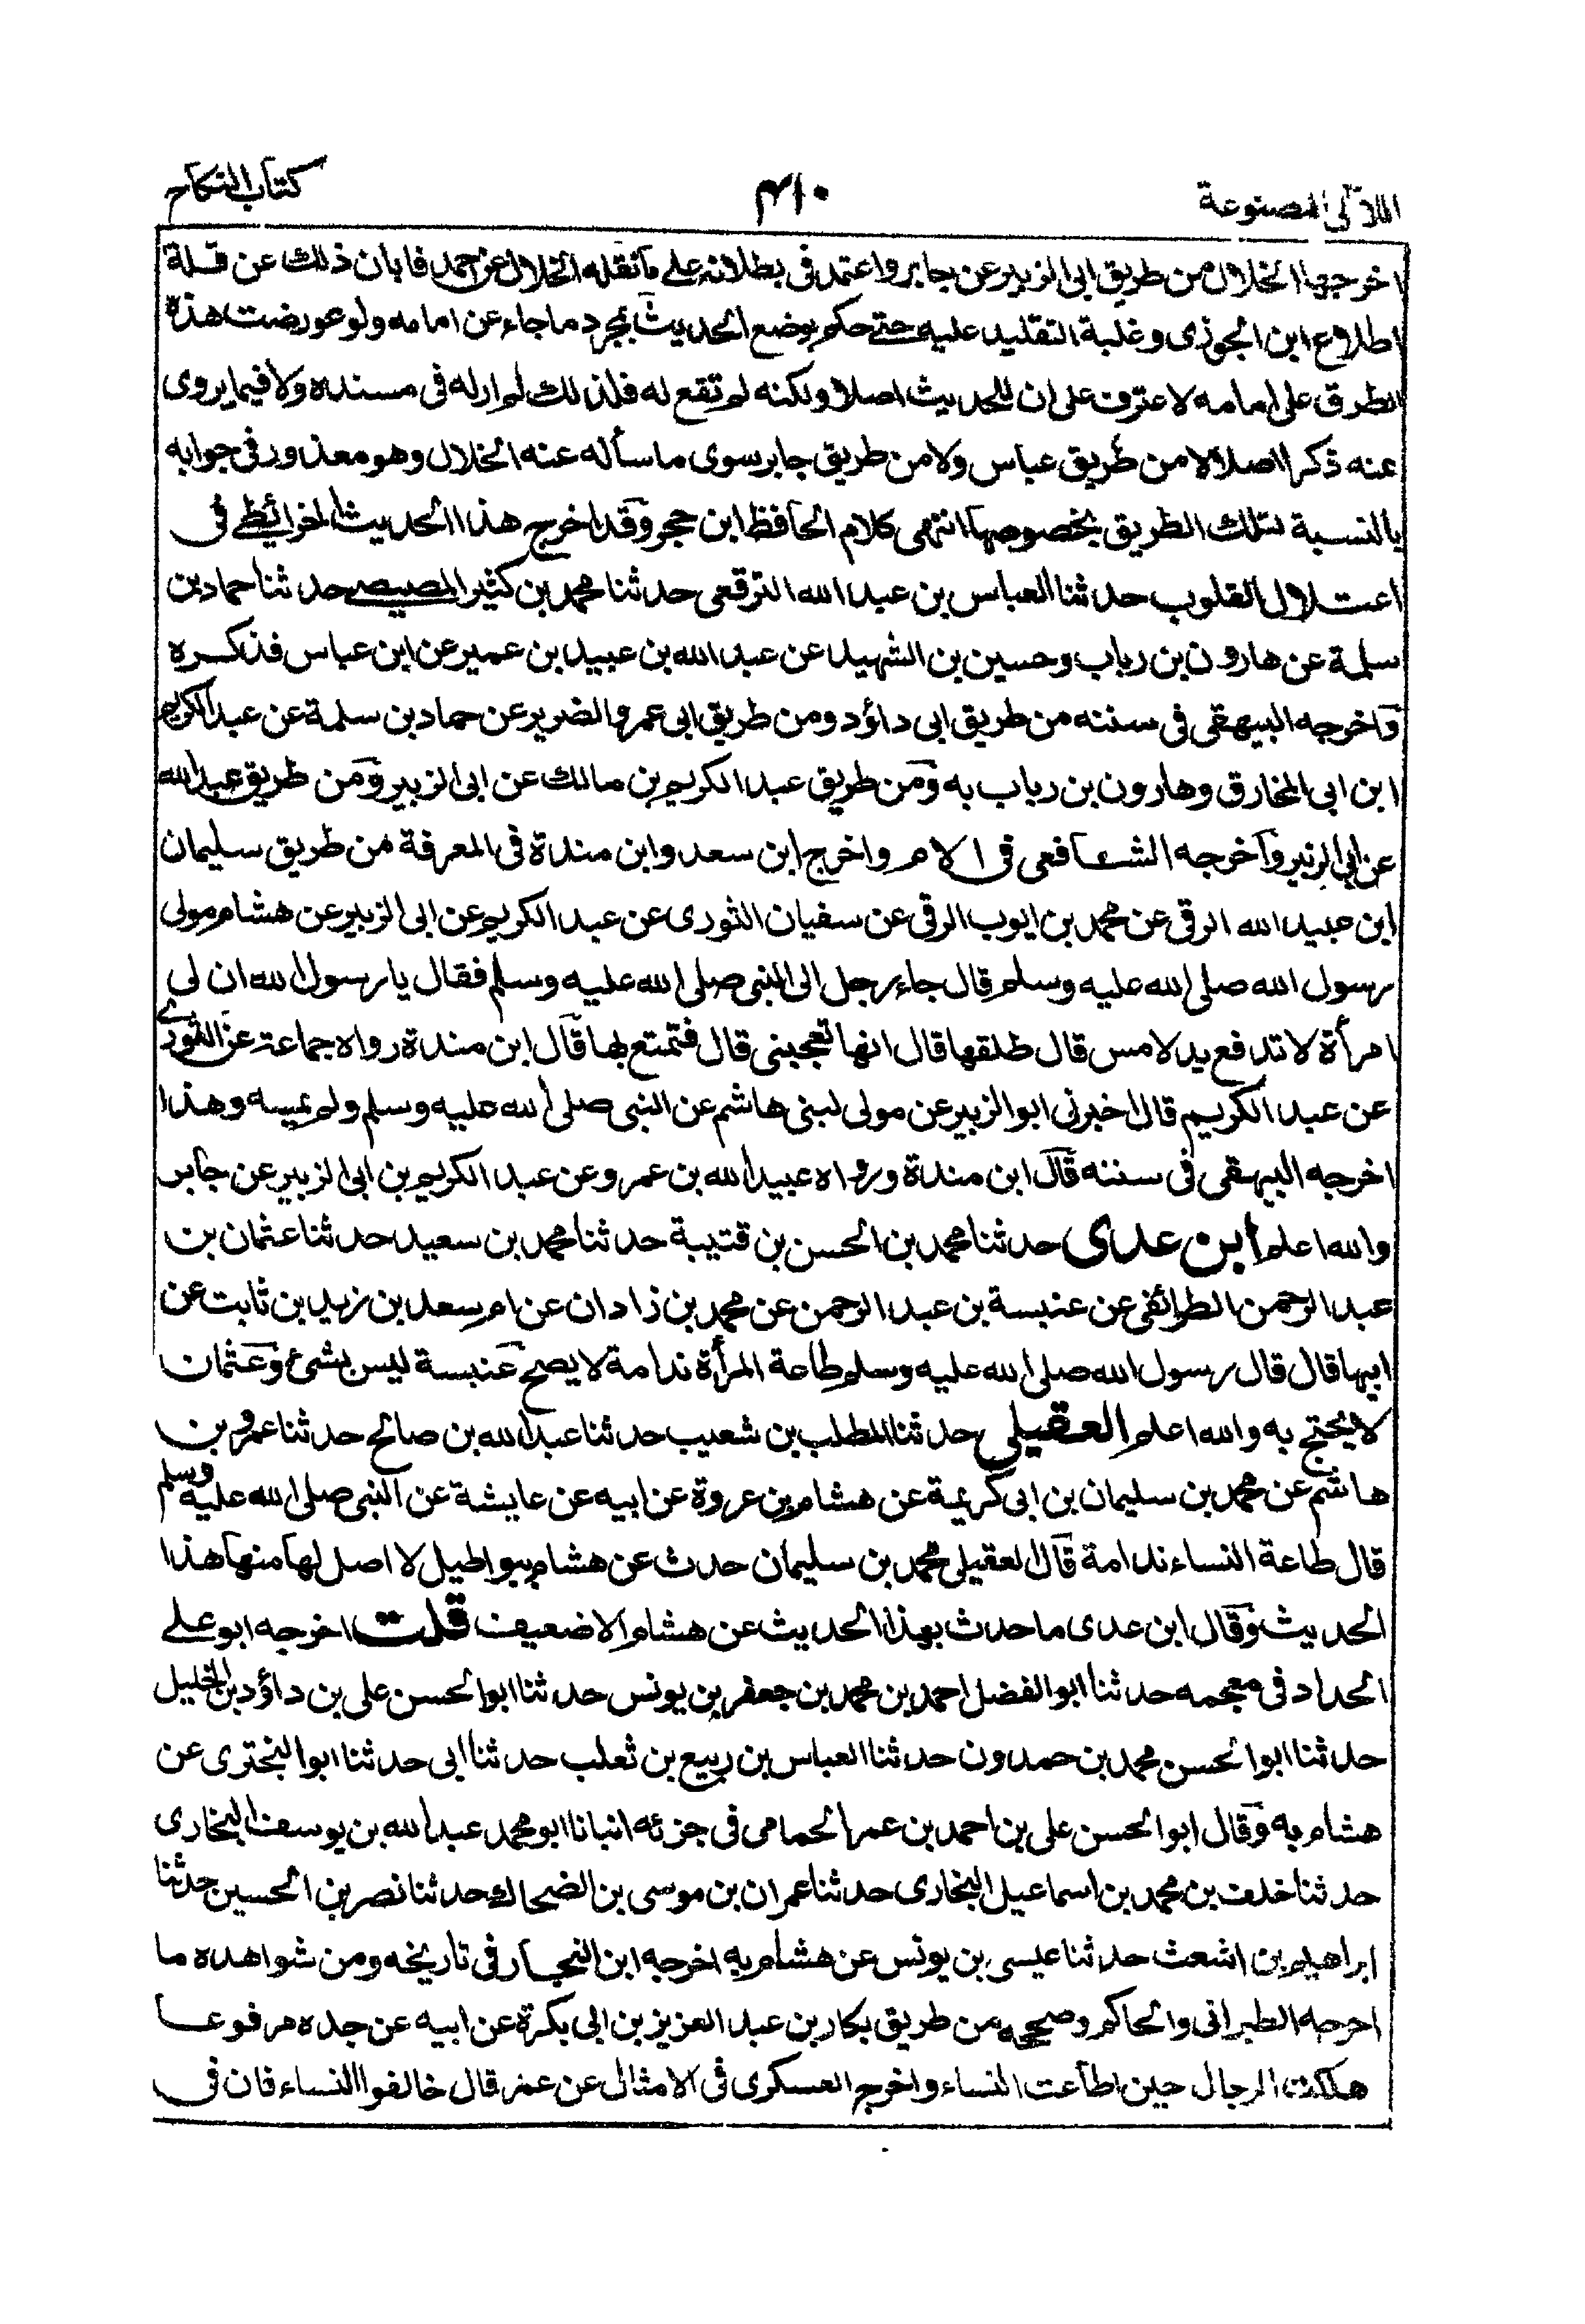 اللآلئ المصنوعة
۴۱۰
كتاب النكاح
اخرجها الخلال من طريق ابى الزبير عن جابر واعتمد فى بطلانه على ما نقله الخلال عن احمد فابان ذلك عن قلة
اطلاع ابن الجوزى وغلبة التقليد عليه حتے حكم بوضع الحديث بمجرد ما جاء عن امامه ولو عورضت هذة
الطرق على امامه لاعترف على ان للحديث اصلا ولكنه لم تقع له فلذلك لم ار له فى مسنده ولا فيما يروى
عنه ذكرا اصلا لا من طريق عباس ولا من طريق جابر سوى ما سأله عنه الخلال وهو معذور فى جوابه
بالنسبة لتلك الطريق بخصوصها انتهى كلام الحافظ ابن حجر وقد اخرج هذا الحديث الخرائطے فى
اعتلال القلوب حدثنا العباس بن عبد الله الترقعى حدثنا محمد بن كثير المصيصے حدثنا حماد بن
سلمة عن هارون بن رباب وحسين بن الشهيد عن عبد الله بن عبيد بن عمير عن ابن عباس فذكره
واخرجه البيهقى فى سننه من طريق ابى داؤد ومن طريق ابى عمرو الضرير عن حماد بن سلمة عن عبد الكريم
ابن ابى المخارق وهارون بن رباب به ومن طريق عبد الكريم بن مالك عن ابى الزبير ومن طريق عبيد الله
عن ابى الزبير وآخرجه الشافعى فى الام واخرج ابن سعد وابن مندة فى المعرفة من طريق سليمان
ابن عبيد الله الرقى عن محمد بن ايوب الرقى عن سفيان الثورى عن عبد الكريم عن ابى الزبير عن هشام مولى
رسول الله صلى الله عليه وسلم قال جاء رجل الى النبى صلى الله عليه وسلم فقال يا رسول الله ان لى
امرأة لا تدفع يد لامس قال طلقها قال انها تعجبنى قال فتمتع بها قال ابن مندة رواه جماعة عن الثورے
عن عبد الكريم قال اخبرنى ابو الزبير عن مولى لبنى هاشم عن النبى صلى الله عليه وسلم ولم يسمه وهذا
اخرجه البيهقى فى سننه قال ابن مندة ورواه عبيد الله بن عمرو عن عبد الكريم بن ابى الزبير عن جابر
والله اعلم ابن عدى حدثنا محمد بن الحسن بن قتيبة حدثنا محمد بن سعيد حدثنا عثمان بن
عبد الرحمن الطرائفى عن عنبسة بن عبد الرحمن عن محمد بن زاذان عن ام سعد بن زيد بن ثابت عن
ابيها قال قال رسول الله صلى الله عليه وسلم طاعة المرأة ندامة لا يصح عنبسة ليس بشئ وعثمان
لا يحتج به والله اعلم العقيلى حدثنا المطلب بن شعيب حدثنا عبد الله بن صالح حدثنا عمرو بن
هاشم عن محمد بن سليمان بن ابى كريمة عن هشام بن عروة عن ابيه عن عايشة عن النبى صلى الله عليه وسلم
قال طاعة النساء ندامة قال العقيلى محمد بن سليمان حدث عن هشام ببواطيل لا اصل لها منها هذا
الحديث وقال ابن عدى ما حدث بهذا الحديث عن هشام الا ضعيف قلت اخرجه ابو علے
الحداد فى معجمه حدثنا ابو الفضل احمد بن محمد بن جعفر بن يونس حدثنا ابو الحسن على بن داؤد بن الخليل
حدثنا ابو الحسن محمد بن حمدون حدثنا العباس بن ربيع بن ثعلب حدثنا ابى حدثنا ابو البخترى عن
هشام به وقال ابو الحسن على بن احمد بن عمر الحمامى فى جزئه انبانا ابو محمد عبد الله بن يوسف البخارى
حدثنا خلف بن محمد بن اسماعيل البخارى حدثنا عمران بن موسى بن الضحاك حدثنا نصر بن الحسين حدثنا
ابراهيم بن اشعث حدثنا عيسى بن يونس عن هشام به اخرجه ابن النجار فى تاريخه ومن شواهده ما
اخرجه الطبرانى والحاكم وصححه من طريق بكار بن عبد العزيز بن ابى بكرة عن ابيه عن جده مرفوعا
هلكت الرجال حين اطاعت النساء واخرج العسكرى فى الامثال عن عمر قال خالفوا النساء فان فى